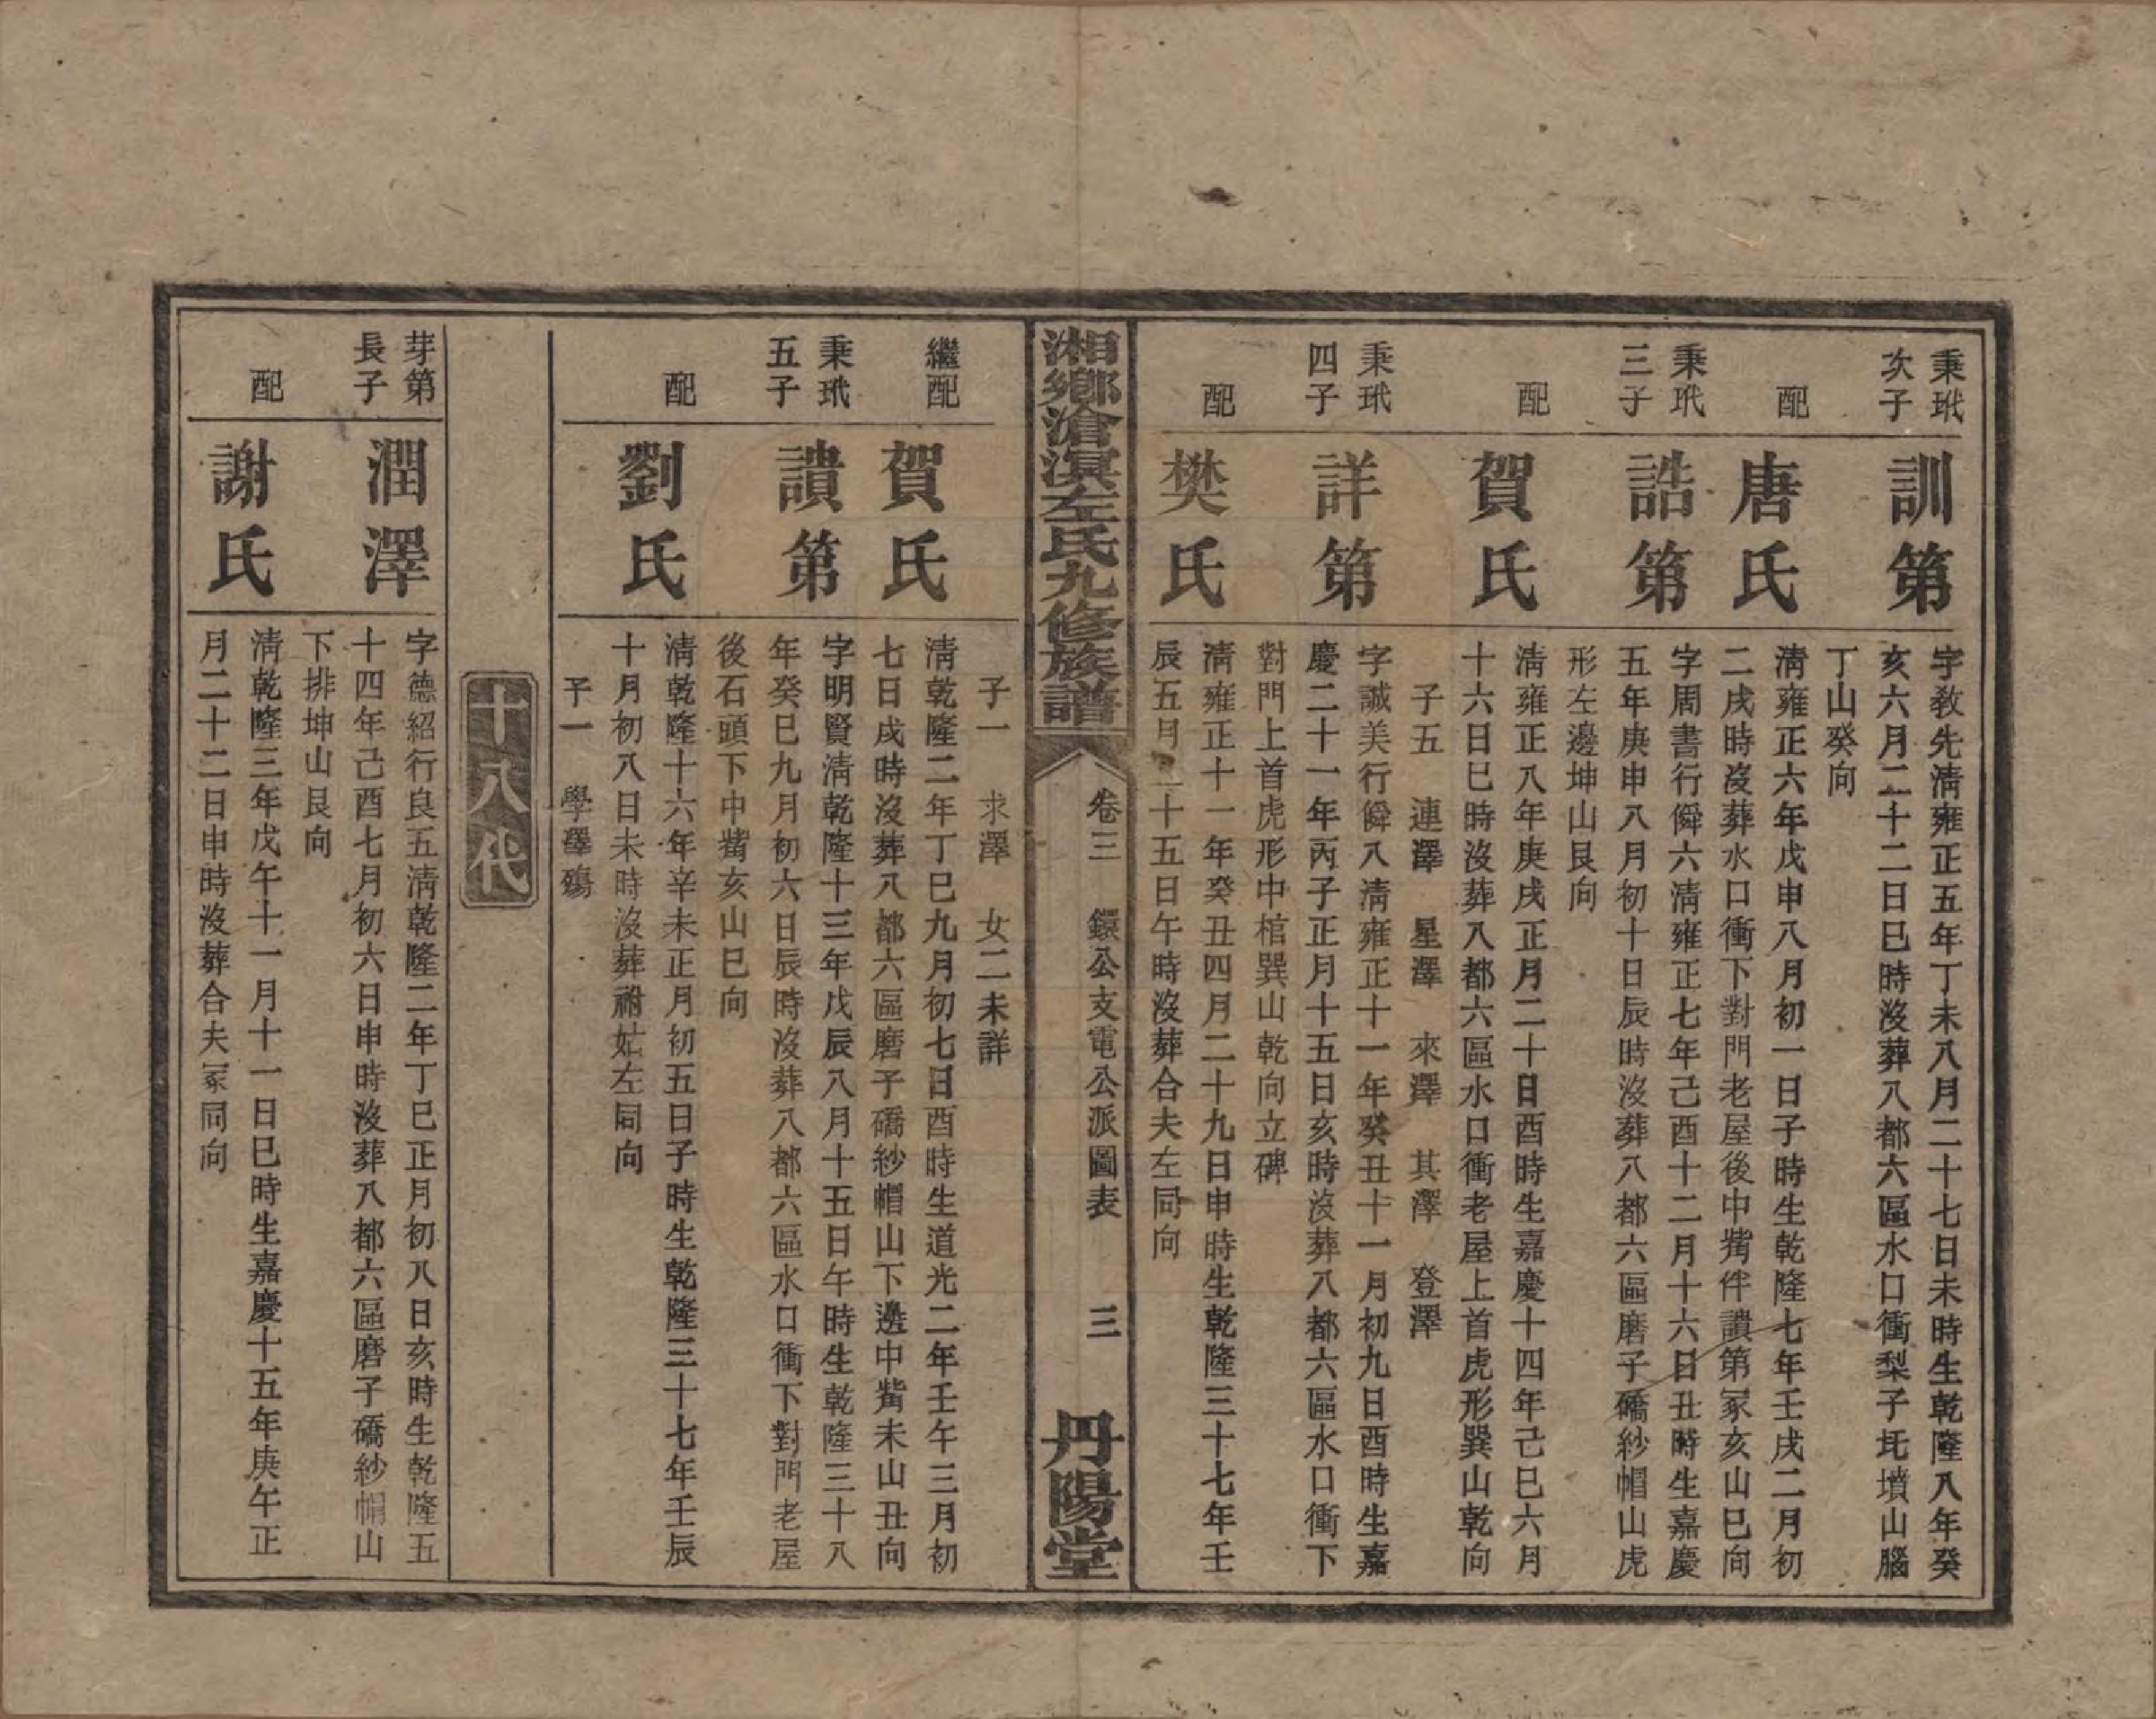 秉玳
次子
訓第
字敎先淸雍正五年丁未八月二十七日未時生乾隆八年癸
亥六月二十二日巳時沒葬八都六區水口衝梨子坉墳山腦
丁山癸向
配
唐氏
淸雍正六年戊申八月初一日子時生乾隆七年壬戌二月初
二戌時沒葬水口衝下對門老屋後中觜伴讃第冢亥山巳向
秉玳
三子
誥第
字周書行僢六淸雍正七年己酉十二月十六日丑時生嘉慶
五年庚申八月初十日辰時沒葬八都六區磨子礄紗帽山虎
形左邊坤山艮向
配
賀氏
淸雍正八年庚戌正月二十日酉時生嘉慶十四年己巳六月
十六日巳時沒葬八都六區水口衝老屋上首虎形巽山乾向
子五 連澤 星澤 來澤 其澤 登澤
秉玳
四子
詳第
字誠美行僢八淸雍正十一年癸丑十一月初九日酉時生嘉
慶二十一年丙子正月十五日亥時沒葬八都六區水口衝下
對門上首虎形中棺巽山乾向立碑
配
樊氏
淸雍正十一年癸丑四月二十九日申時生乾隆三十七年壬
辰五月二十五日午時沒葬合夫左同向
湘鄉滄溟左氏九修族譜
卷三 鐶公支電公派圖表 三
丹陽堂
子一 求澤 女二未詳
繼配
賀氏
淸乾隆二年丁巳九月初七日酉時生道光二年壬午三月初
七日戌時沒葬八都六區磨子礄紗帽山下邊中觜未山丑向
秉玳
五子
讃第
字明賢淸乾隆十三年戊辰八月十五日午時生乾隆三十八
年癸巳九月初六日辰時沒葬八都六區水口衝下對門老屋
後石頭下中觜亥山巳向
配
劉氏
淸乾隆十六年辛未正月初五日子時生乾隆三十七年壬辰
十月初八日未時沒葬祔姑左同向
子一 學澤殤
十八代
芽第
長子
潤澤
字德紹行良五淸乾隆二年丁巳正月初八日亥時生乾隆五
十四年己酉七月初六日申時沒葬八都六區磨子礄紗帽山
下排坤山艮向
配
謝氏
淸乾隆三年戊午十一月十一日巳時生嘉慶十五年庚午正
月二十二日申時沒葬合夫冢同向